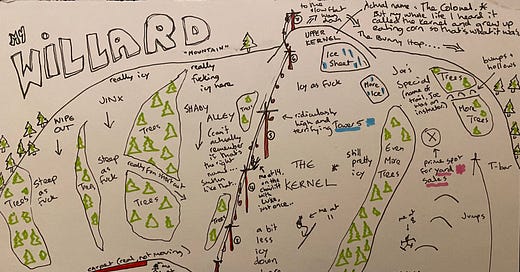 MT
WILLARD
"MOUNTAIN"
to the
slow flat
UPPER
KERNEL
Actual name = The Colonel. *
But my whole life I heard it
called the kernel and grew up
eating corn so that's what it was
The Bunny Hop...
bumps +
hollows
Ice
Sheet
More
Ice!
Icy as fuck
Joe's
Special
(name of
trail. Joe
was an
instructor)
Trees
More
Trees
really icy
really
fucking
icy here
WIPE
OUT
JINX
SHADY
ALLEY
(can't
actually
remember
if that's
the right
name...
Trees
Steep
as
fuck
Trees
Steep
as
fuck
Trees
really fucking steep
Trees
Trees
ridiculously
high and
terrifying Tower 5
THE
KERNEL
still
pretty
icy
Even
More
Trees
prime spot
for yard
sales
T-bar
Jumps
me at
11
me at 14
a bit
less
icy
down
here
carpet (read not moving)